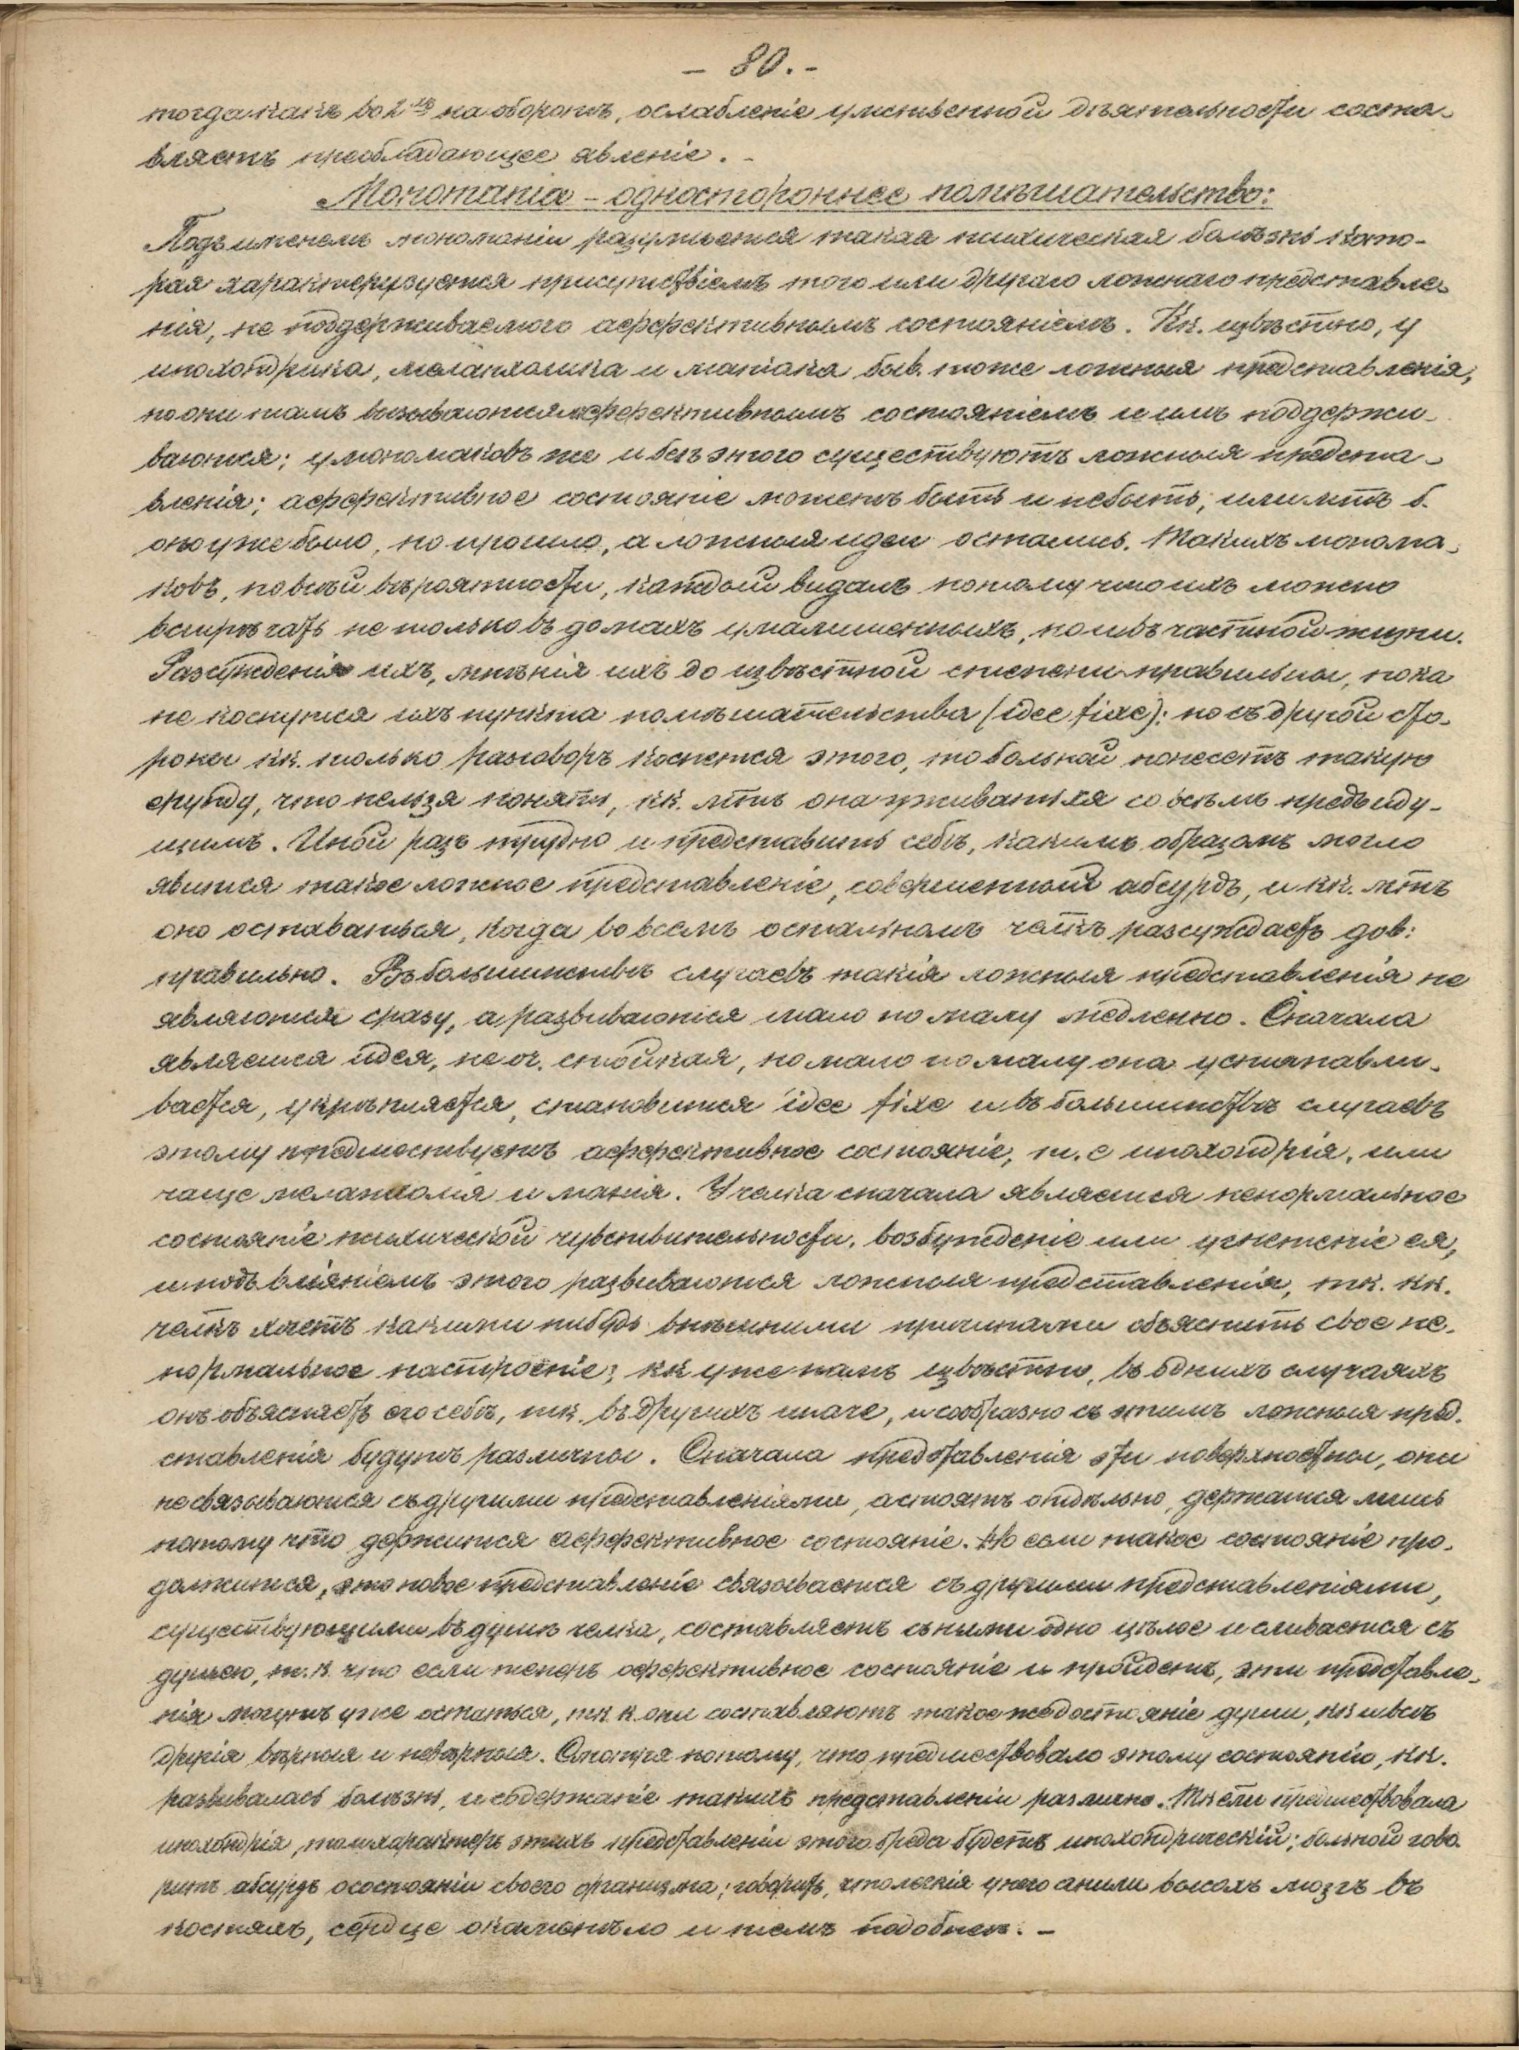 – 80. –
тогда какъ во 2хъ на оборотъ, ослабленіе умственной дѣятельности соста-
вляетъ преобладающее явленіе. –
Monomania – одностороннее помѣшательство:
Подъ именемъ мономаніи разумѣется такая психическая болѣзнь кото-
рая характеризуется присутствіемъ того или другаго ложнаго представле-
нія, не поддерживаемаго аффективнымъ состояніемъ. Кк. извѣстно, у
ипохондрика, меланхолика и маніака быв. тоже ложныя представленія,
но они тамъ вызываются аффективнымъ состояніемъ и имъ поддержи-
ваются; у мономаковъ же и безъ этого существуютъ ложныя предста-
вленія; аффективное состояніе можетъ быть и не быть, или мтъ б.
оно уже было, но прошло, а ложныя идеи остались. Такихъ монома-
ковъ, по всей вѣроятности, каждый видалъ потому что ихъ можно
встрѣчать не только въ домахъ умалишенныхъ, но и въ частной жизни.
Разсужденія ихъ, мнѣнія ихъ до извѣстной степени правильны, пока
не коснутся ихъ пункта помѣшательства (idee fixe): но съ другой сто-
роны кк. только разговоръ коснется этого, то больной понесетъ такую
ерунду, что нельзя понять, кк. мтъ она уживаться со всѣмъ предъиду-
щимъ. Иной разъ трудно и представить себѣ, какимъ образомъ могло
явиться такое ложное представленіе, совершенный абсурдъ, и кк. мтъ
оно оставаться, когда во всемъ остальномъ челкъ разсуждаетъ дов:
правильно. Въ большинствѣ случаевъ такія ложныя представленія не
являются сразу, а развиваются мало по малу медленно. Сначала
является идея, не оч. стойкая, но мало по малу она устанавли-
вается, укрѣпляется, становится idee fixe и въ большинствѣ случаевъ
этому предшествуетъ аффективное состояніе, т. е ипохондрія, или
чаще меланхолія и манія. У челка сначала является ненормальное
состояніе психической чувствительности, возбужденіе или угнетеніе ея,
и подъ вліяніемъ этого развиваются ложныя представленія, тк. кк.
челкъ хочетъ какими нибудь внѣшними причинами объяснить свое не-
нормальное настроеніе; кк уже намъ извѣстно, въ однихъ случаяхъ
онъ объясняетъ его себѣ, тк. въ другихъ иначе, и сообразно съ этимъ ложныя пред-
ставленія будутъ различны. Сначала представленія эти поверхностны, они
не связываются съ другими представленіями, а стоятъ отдѣльно, держатся лишь
потому что держится аффективное состояніе. Но если такое состояніе про-
должится, это новое представленіе связывается съ другими представленіями,
существующими въ душѣ челка, составляетъ съ ними одно цѣлое и сливается съ
душею, т. к. что если теперь аффективное состояніе и пройдетъ, эти представле-
нія могутъ уже остаться, тк. к. они составляютъ такое же достояніе души, кк и всѣ
другія вѣрныя и невѣрныя. Смотря потому, что предшествовало этому состоянію, кк.
развивалась болѣзнь, и содержаніе такихъ представленій различно. Тк если предшествовала
ипохондрія, то и характеръ этихъ представленій этого бреда будетъ ипохондрическій; больной гово-
ритъ абсурдъ о состояніи своего организма; говоритъ, что легкія у него сгнили высохъ мозгъ въ
костяхъ, сердце окаменѣло и тѣмъ подобное. –